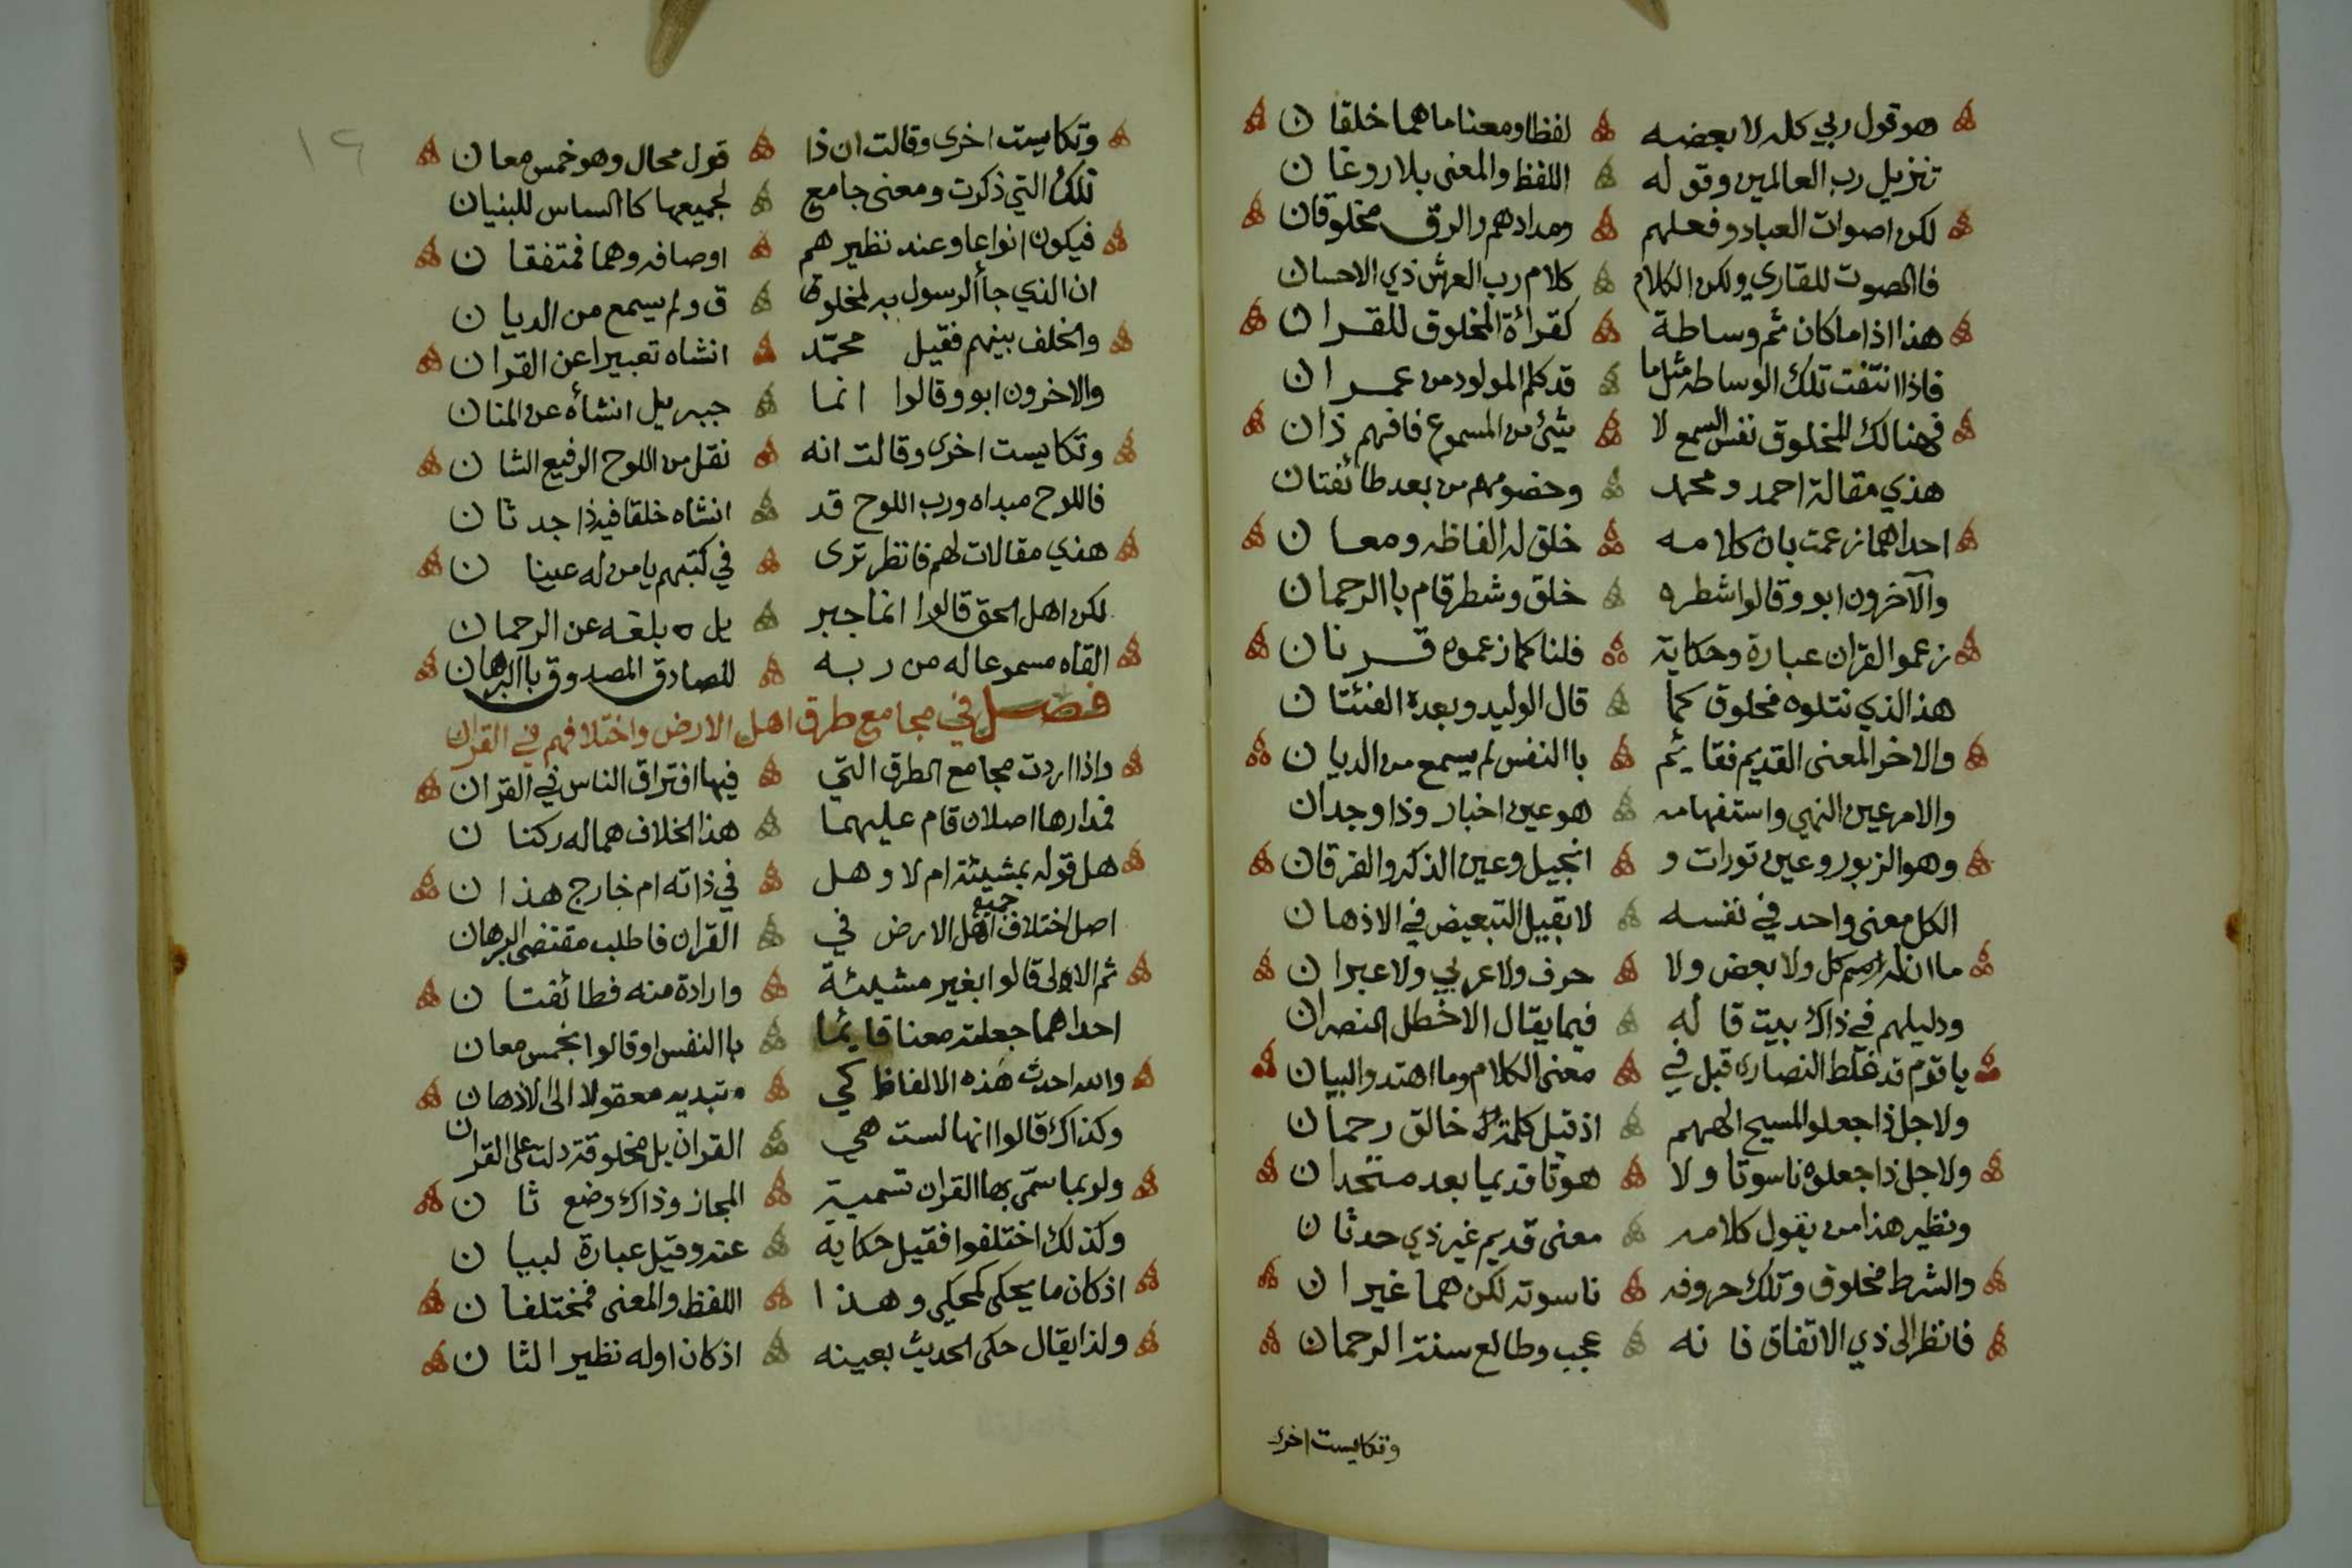 هو قول ربي كله لا بعضه لفظا ومعنا ما هما خلقان
تنزيل رب العالمين وقوله اللفظ والمعنى بلا روغان
لكن اصوات العباد وفعلهم ومدادهم والرق مخلوقان
فالصوت للقاري ولكن الكلام كلام رب العرش ذي الاحسان
هذا اذا ما كان ثم وساطة كقرأة المخلوق للقران
فاذا انتفت تلك الوساطه مثل ما قد كلم المولود من عمران
فهنالك المخلوق نفس السمع لا شيئ من المسموع فافهم ذان
هذي مقالة احمد ومحمد وخصومهم من بعد طائفتان
احداهما زعمت بان كلامه خلق له الفاظه ومعان
والآخرون ابو وقالوا شطره خلق وشطر قام باالرحمان
زعموا القران عبارة وحكاية قلنا كما زعموه قرنان
هذا الذي نتلوه مخلوق كما قال الوليد وبعده الفئتان
والاخر المعنى القديم فقايئم باالنفس لم يسمع من الديان
والامر عين النهي واستفهامه هو عين اخبار وذا وجدان
وهو الزبور وعين تورات و انجيل وعين الذكر والفرقان
الكل معنى واحد في نفسه لا بقبيل التبعيض في الاذهان
ما ان له كل ولا بعض ولا حرف ولا عربي ولا عبران
ودليلهم في ذاك بيت قاله فيما يقال الاخطل النصران
يا قوم قد غلط النصارى قبل في معنى الكلام وما اهتدو البيان
ولاجل ذا جعلو المسيح الههم اذ قيل كلمة خالق رحمان
ولاجل ذا جعلوه ناسوتا ولا هوتا قديما بعد متحدان
ونظير هذا من يقول كلامه معنى قديم غير ذي حدثان
والشرط مخلوق وتلك حروفه ناسوته لكن هما غيران
فانظر الى ذي الاتفاق فانه عجب وطالع سنة الرحمان
وتكايست اخرى
١٢
وتكايست اخرى وقالت ان ذا قول محال وهو خمس معان
تلك التي ذكرت ومعنى جامع لجميعها كاالساس للبنيان
فيكون انواعا وعند نظيرهم اوصافه وهما فمتفقان
ان الذي جأ الرسول به لمخلوق ق ولم يسمع من الديان
والخلف بينهم فقيل محمّد انشاه تعبيرا عن القران
والاخرون ابو وقالوا انما جبريل انشأه عن المنان
وتكايست اخرى وقالت انه نقل من اللوح الرفيع الشان
فاللوح مبداه ورب اللوح قد انشاه خلقا فيه ذا حدثان
هذي مقالات لهم فانظر ترى في كتبهم يا من له عينان
لكن اهل الحق قالوا انما جبر يل ه بلغه عن الرحمان
القاه مسموعا له من ربه للصادق المصدوق باالبرهان
فصل في مجامع طرق اهل الارض واختلافهم في القران
واذا اردت مجامع الطرق التي فيها افتراق الناس في القران
فمدارها اصلان قام عليهما هذا الخلاف هما له ركنان
هل قوله بمشيئة ام لا وهل في ذاته ام خارج هذان
اصل اختلاف جميع اهل الارض في القران فاطلب مقتضى البرهان
ثم الاولى قالوا بغير مشيئة وارادة منه فطائفتان
احداهما جعلته معنا قايئما باالنفس او قالوا بخمس معان
والله احدث هذه الالفاظ كي تبديه معقولا الى الاذهان
وكذاك قالوا انها لست هي القران بل مخلوقة دلت على القران
ولربما سمّى بها القران تسمية المجاز وذاك وضع ثان
وكذلك اختلفوا فقيل حكاية عنه وقيل عبارة لبيان
اذ كان ما يحكى كمحكي وهذا اللفظ والمعنى فمختلفان
ولذا يقال حكى الحديث بعينه اذ كان اوله نظير الثان